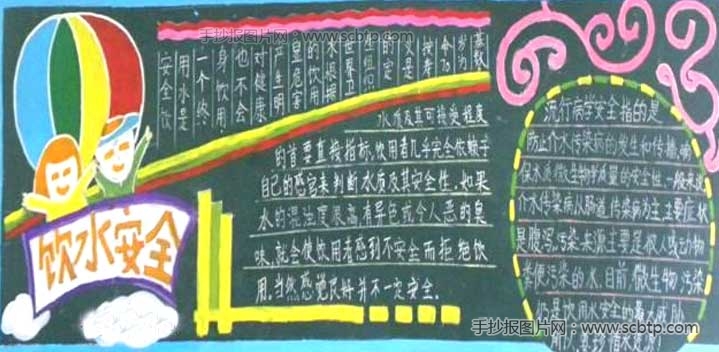 手抄报图片网:www.scbtp.com
饮水安全
安全饮
用水是
一个终
身饮用
也不会
对健康
产生明
显危害
的饮用
水根据
世界卫
生组织
的定
义是
按寿
命70
岁为
基数
水质及其可接受程度
的首要直接指标,饮用者几乎完全依赖于
自己的感官来判断水质及其安全性.如果
水的混浊度很高有异色或令人恶的臭
味,就会使饮用者感到不安全而拒绝饮
用.当然感觉良好并不一定安全.
流行病学安全指的是
防止介水传染病的发生和传播,确
保水质微生物学质量的安全性.一般来说
介水传染病以肠道传染病为主,主要症状
是腹泻.污染来源主要是被人或动物
粪便污染的水.目前,微生物污染
仍是饮用水安全的最大威胁
手抄报图片网:www.scbtp.com